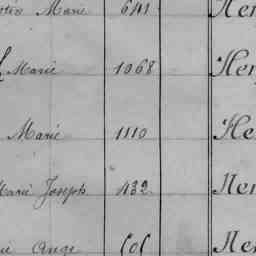 Marie 641 Hen
Marie 1068 Hen
Marie 1110 He
Marie Joseph 432 Hen
Ange 601 Hen